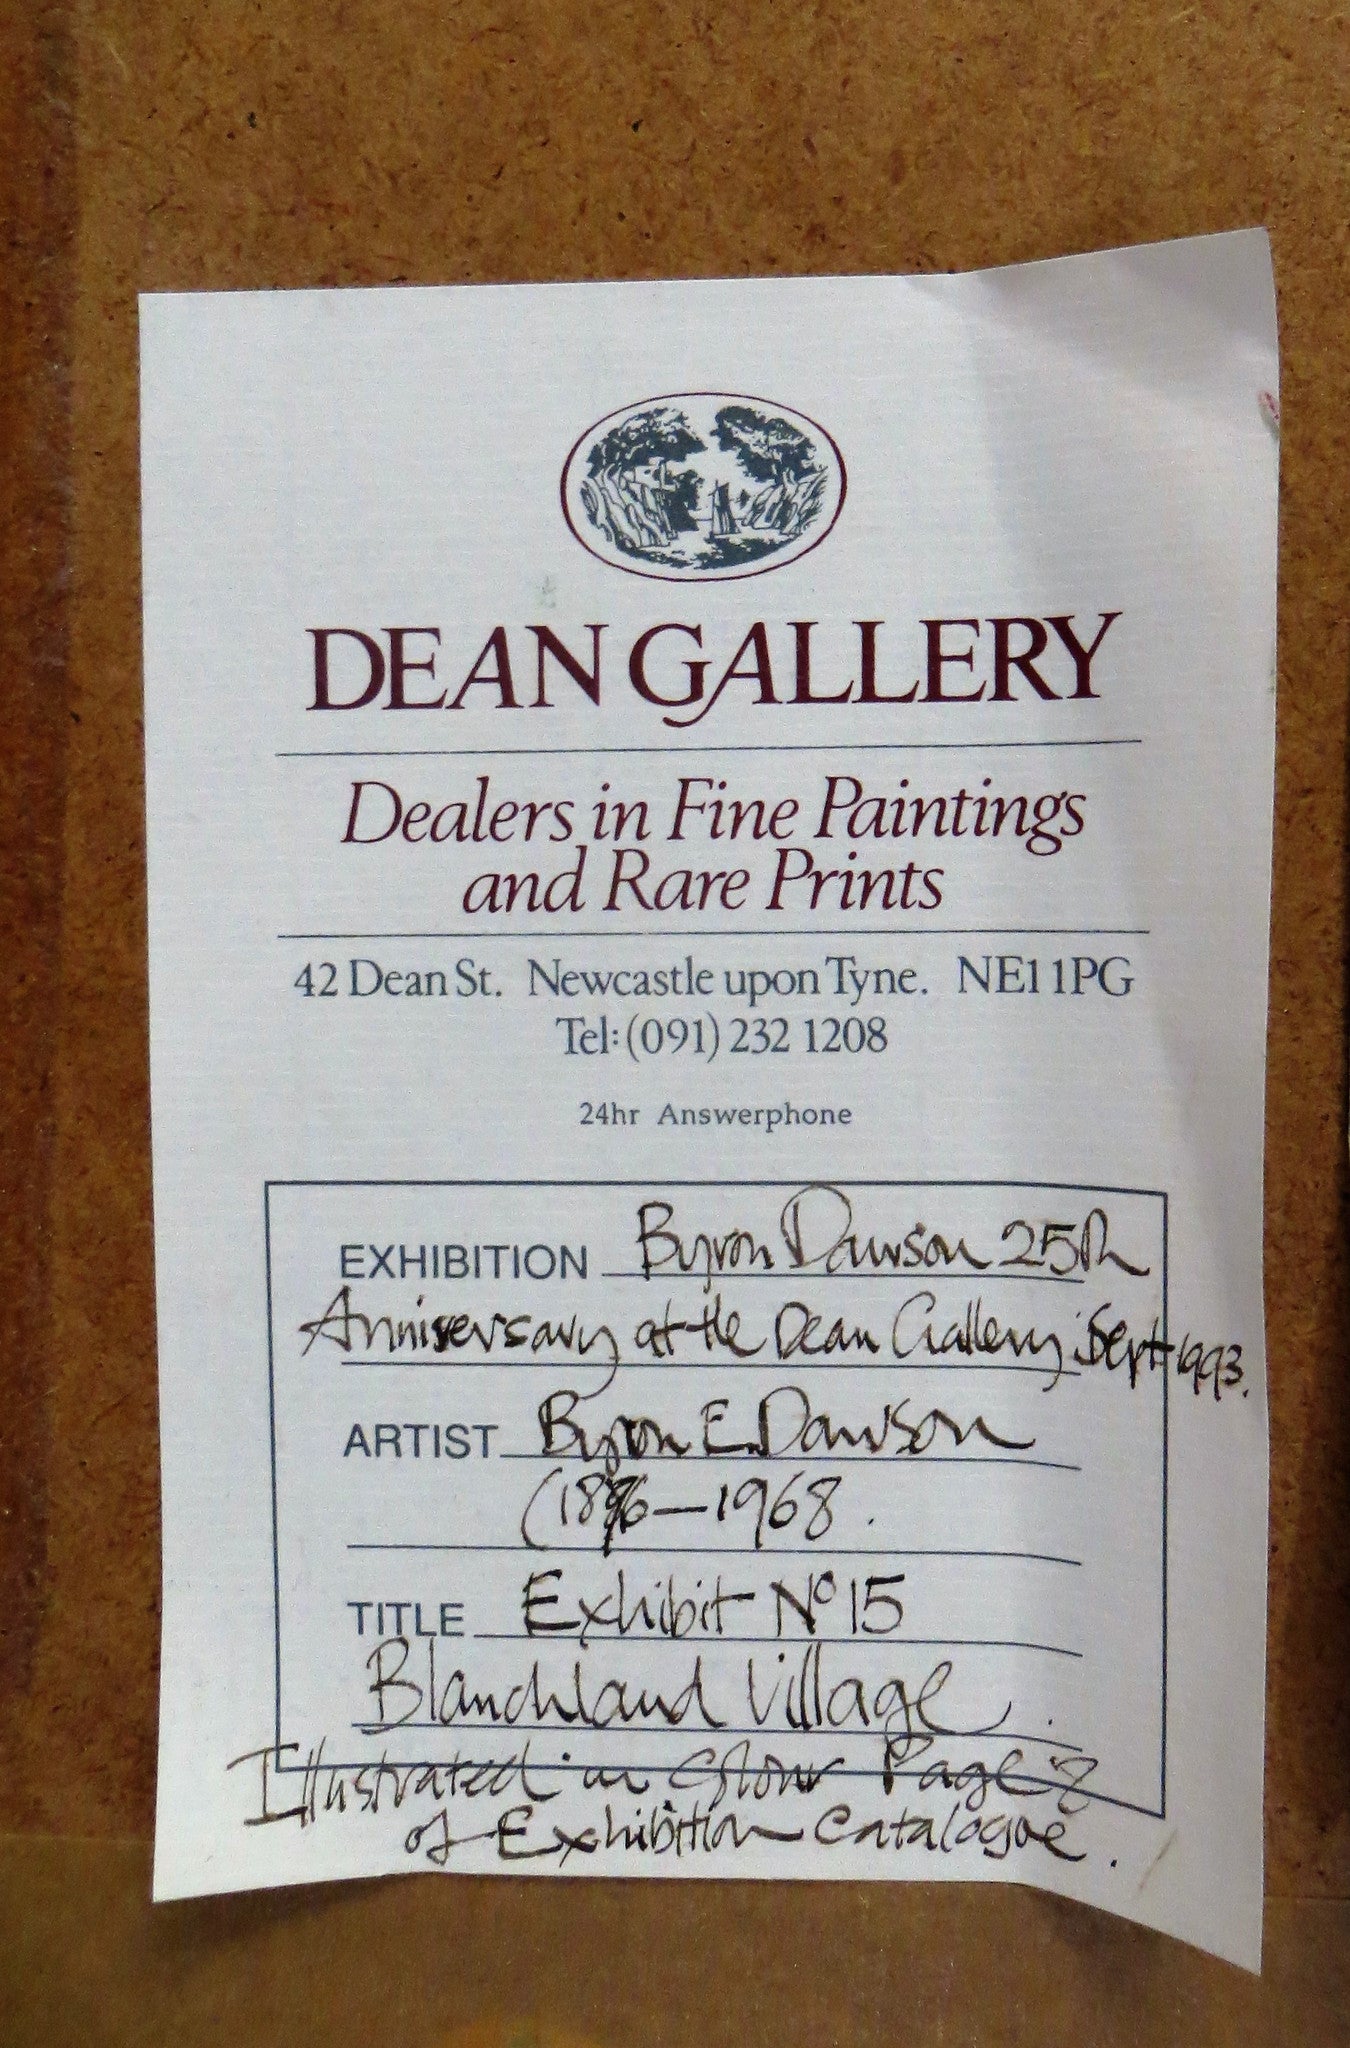 DEAN GALLERY
Dealers in Fine Paintings
and Rare Prints
42 Dean St. Newcastle upon Tyne. NE1 1PG
Tel: (091) 232 1208
24hr Answerphone
EXHIBITION Byron Dawson 25th
Anniversary at the Dean Gallery Sept 1993.
ARTIST Byron E. Dawson
(1896–1968.
TITLE Exhibit No 15
Blanchland Village.
Illustrated in Colour Page 8
of Exhibition Catalogue.